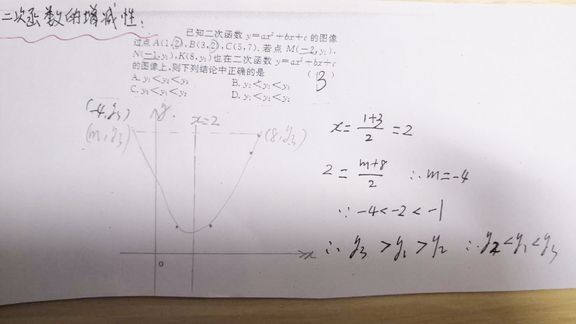 二次函数的增减性:
已知二次函数 y=ax²+bx+c 的图像
过点 A(1,2),B(3,2),C(5,7).若点 M(-2,y₁),
N(-1,y₂),K(8,y₃)也在二次函数 y=ax²+bx+c
的图像上,则下列结论中正确的是 (B)
A. y₁<y₂<y₃ B. y₂<y₁<y₃
C. y₃<y₁<y₂ D. y₁<y₃<y₂
(-4,y₃) y x=2
(m,y₃) (8,y₃)
x
o
x=(1+3)/2=2
2=(m+8)/2 ∴m=-4
∵-4<-2<-1
∴ y₃>y₁>y₂ ∴y₂<y₁<y₃